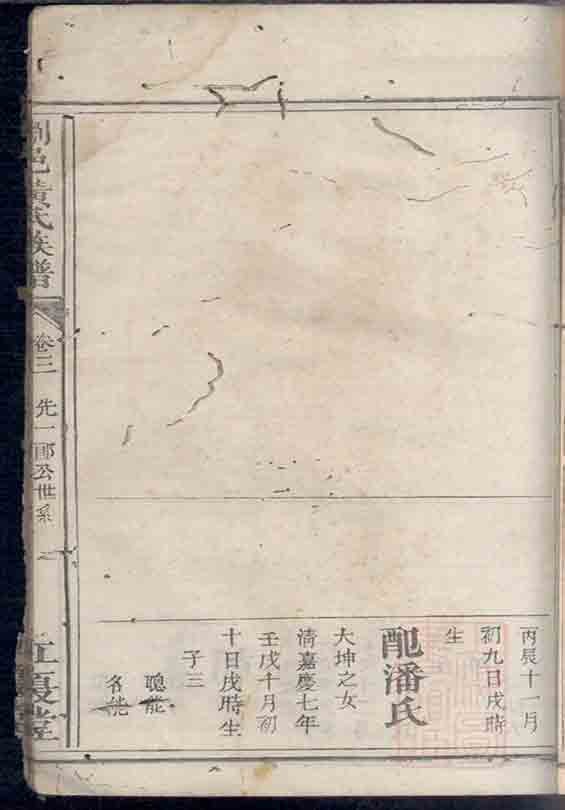 丙辰十一月
初九日戌時
生
配潘氏
大坤之女
清嘉慶七年
壬戌十月初
十日戌時生
子三
聰能
名能
邑黃氏族譜
卷三
先一郎公世系
夏堂